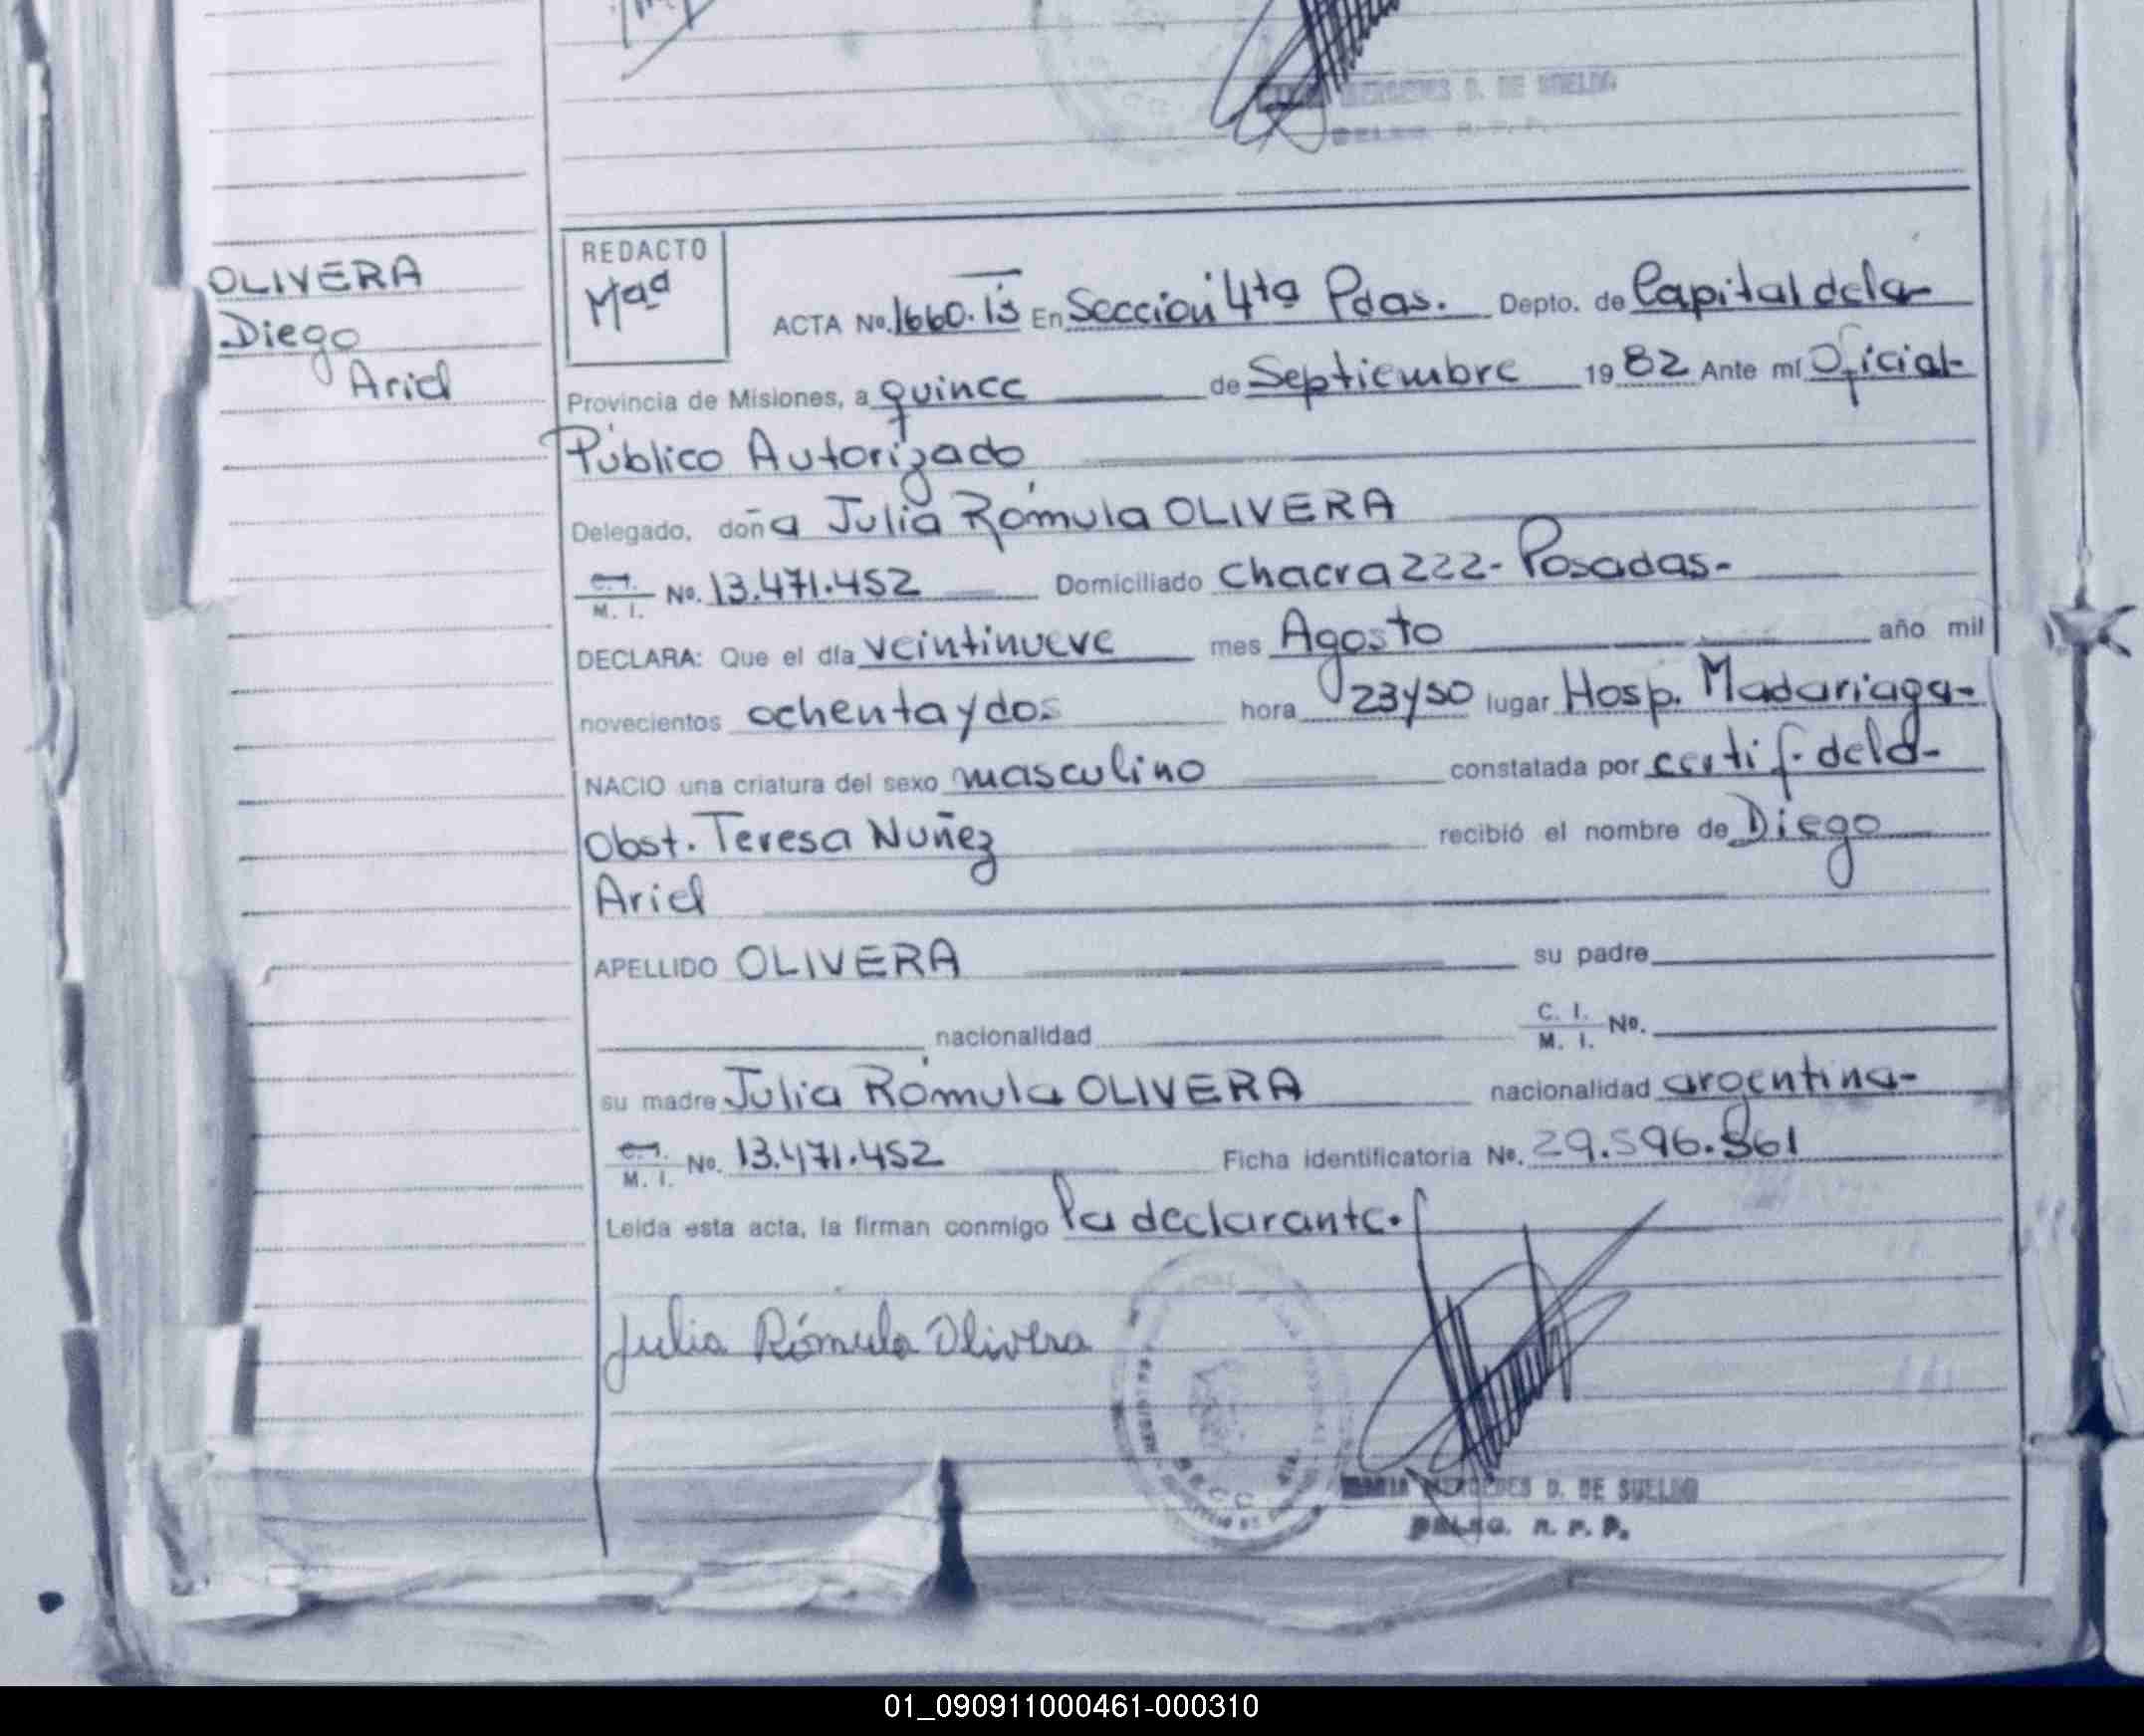 MERCEDES D. DE SUELDO
DELEG. R. P. P.
OLIVERA
Diego
Ariel
REDACTO
Maa
ACTA No. 1660.13 En Sección 4ta Pdas. Depto. de Capital de la-
Provincia de Misiones, a quince de Septiembre 1982 Ante mí Oficial-
Público Autorizado
Delegado, doña Julia Rómula OLIVERA
C. I. / M. I. No. 13.471.452 Domiciliado Chacra 222- Posadas-
DECLARA: Que el día veintinueve mes Agosto año mil
novecientos ochenta y dos hora 23y50 lugar Hosp. Madariaga-
NACIO una criatura del sexo masculino constatada por certif. de la-
Obst. Teresa Nuñez recibió el nombre de Diego
Ariel
APELLIDO OLIVERA su padre
nacionalidad C. I. / M. I. No.
su madre Julia Rómula OLIVERA nacionalidad argentina-
C. I. / M. I. No. 13.471.452 Ficha identificatoria No. 29.596.861
Leida esta acta, la firman conmigo la declarante.
Julia Rómula Olivera
MARIA MERCEDES D. DE SUELDO
DELEG. R. P. P.
01_090911000461-000310